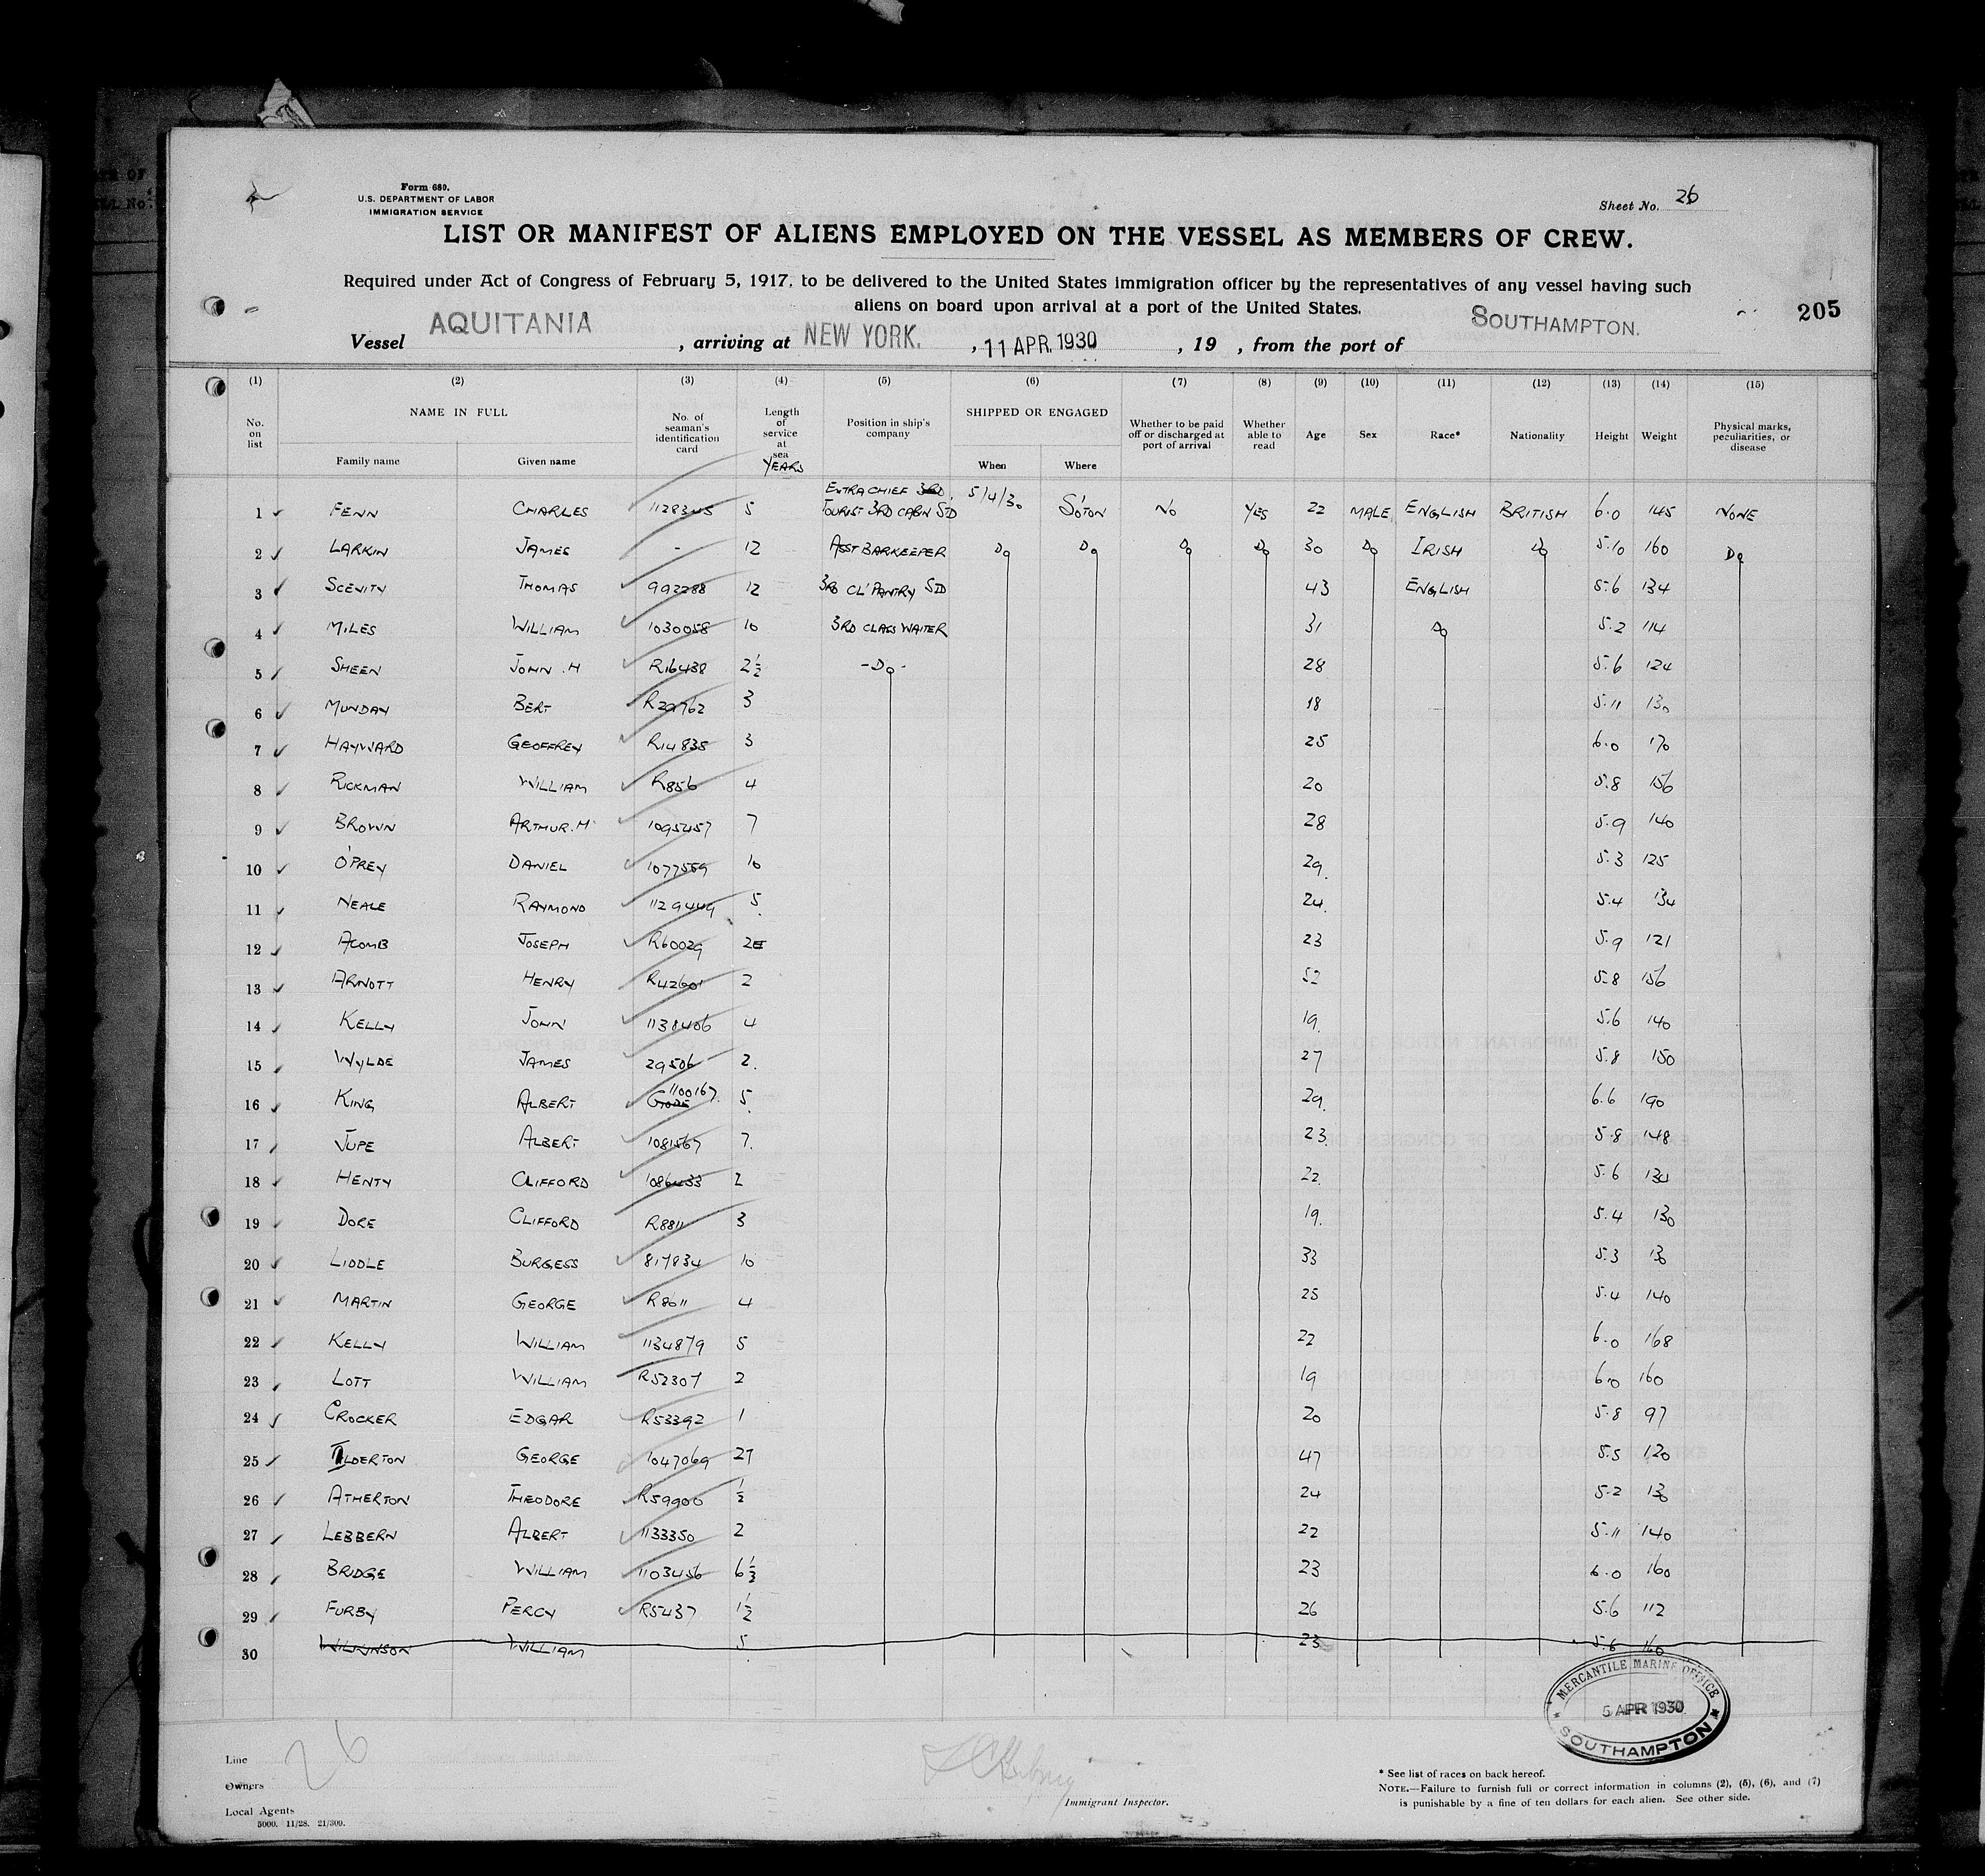 Form 680.
U.S. DEPARTMENT OF LABOR
IMMIGRATION SERVICE
Sheet No. 26
LIST OR MANIFEST OF ALIENS EMPLOYED ON THE VESSEL AS MEMBERS OF CREW.
Required under Act of Congress of February 5, 1917, to be delivered to the United States immigration officer by the representatives of any vessel having such
aliens on board upon arrival at a port of the United States.
205
Vessel AQUITANIA, arriving at NEW YORK., 11 APR. 1930, 19 , from the port of SOUTHAMPTON.
(1) (2) (3) (4) (5) (6) (7) (8) (9) (10) (11) (12) (13) (14) (15)
No. on list NAME IN FULL Family name Given name No. of seaman's identification card Length of service at sea YEARS Position in ship's company SHIPPED OR ENGAGED When Where Whether to be paid off or discharged at port of arrival Whether able to read Age Sex Race* Nationality Height Weight Physical marks, peculiarities, or disease
1 FENN CHARLES 1128345 5 EXTRA CHIEF 3RD. TOURIST 3RD CABIN STD 5/4/30 S'OTON NO YES 22 MALE ENGLISH BRITISH 6.0 145 NONE
2 LARKIN JAMES - 12 ASST BARKEEPER Do Do Do Do 30 Do IRISH Do 5.10 160 Do
3 SCEVITY THOMAS 992288 12 3RD CL' PANTRY STD 43 ENGLISH 5.6 134
4 MILES WILLIAM 1030058 10 3RD CLASS WAITER 31 Do 5.2 114
5 SHEEN JOHN .H R16438 2½ -Do- 28 5.6 124
6 MUNDAY BERT R29762 3 18 5.11 130
7 HAYWARD GEOFFREY R14835 3 25 6.0 170
8 RICKMAN WILLIAM R856 4 20 5.8 156
9 BROWN ARTHUR.H 1095457 7 28 5.9 140
10 O'PREY DANIEL 1077559 10 29. 5.3 125
11 NEALE RAYMOND 1129449 5. 24. 5.4 134
12 ACOMB JOSEPH R60029 2 23 5.9 121
13 ARNOTT HENRY R42601 2 52 5.8 156
14 KELLY JOHN 1138406 4 19. 5.6 140
15 WYLDE JAMES 29506 2. 27 5.8 150
16 KING ALBERT 1100167. 5. 29. 6.6 190
17 JUPE ALBERT 1081567 7. 23. 5.8 148
18 HENTY CLIFFORD 1086433 2 22. 5.6 130
19 DORE CLIFFORD R8811 3 19. 5.4 130
20 LIDDLE BURGESS 817834 10 33 5.3 130
21 MARTIN GEORGE R8011 4 25 5.4 140
22 KELLY WILLIAM 1134879 5 22 6.0 168
23 LOTT WILLIAM R52307 2 19 6.0 160
24 CROCKER EDGAR R53392 1 20 5.8 97
25 TILDERTON GEORGE 1047069 27 47 5.5 120
26 ATHERTON THEODORE R59900 ½ 24 5.2 130
27 LEBBERN ALBERT 1133350 2 22 5.11 140
28 BRIDGE WILLIAM 1103456 6½ 23 6.0 160
29 FURBY PERCY R5437 1½ 26 5.6 112
30 WILKINSON WILLIAM 5. 23 5.6 160
MERCANTILE MARINE OFFICE
5 APR 1930
SOUTHAMPTON
26
Line
Owners
Local Agents
5000. 11/28. 21/309.
Immigrant Inspector.
* See list of races on back hereof.
NOTE.—Failure to furnish full or correct information in columns (2), (5), (6), and (7)
is punishable by a fine of ten dollars for each alien. See other side.